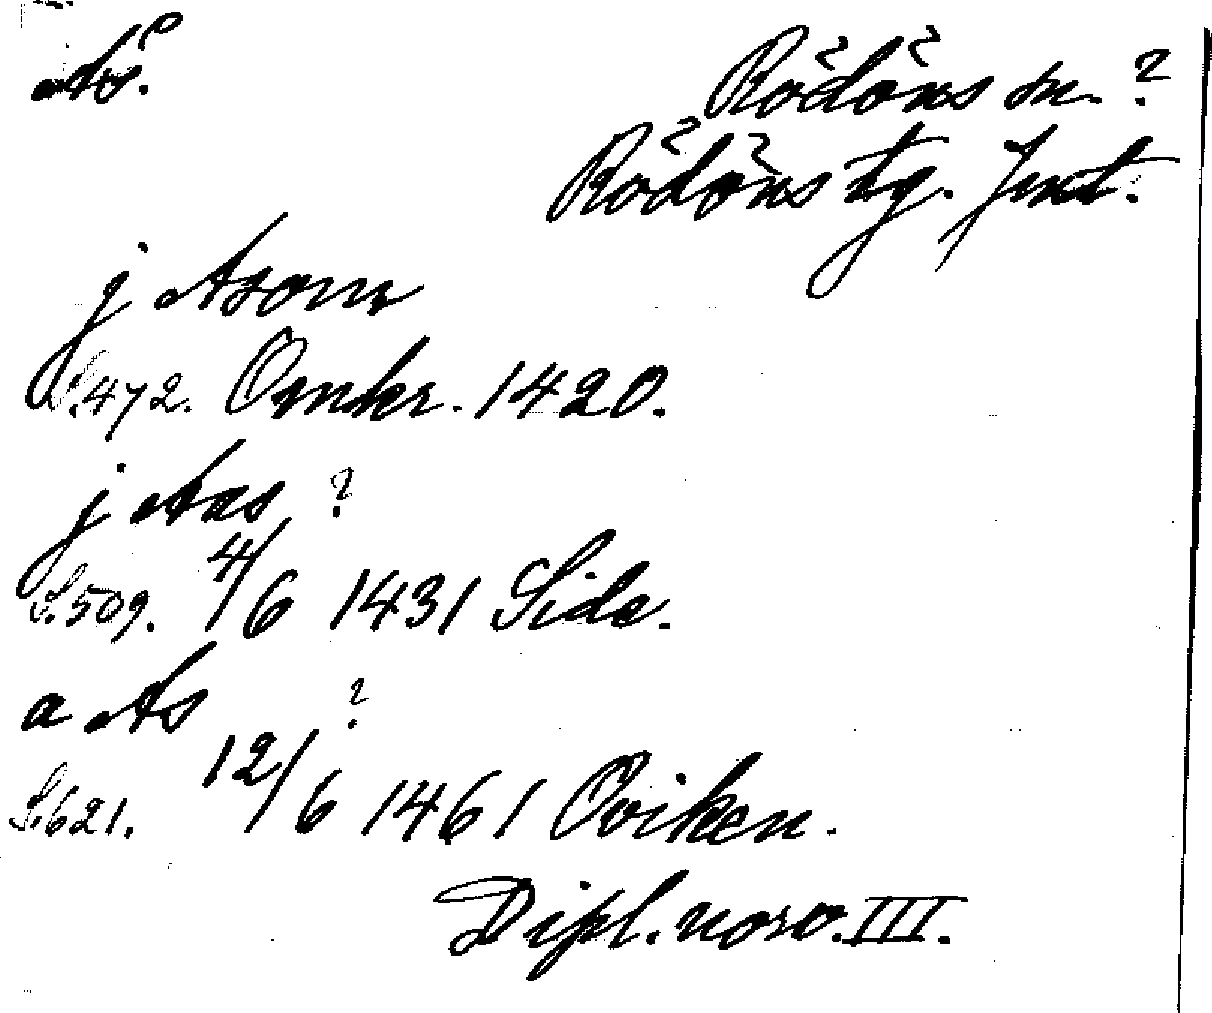 Ås.
Rödöns sn. ?
Rödöns tg. Jmt.
j Asom
S.472. Omkr. 1420.
j Aas ?
S.509. 4/6 1431 Side.
a As ?
S.621. 12/6 1461 Oviken.
Dipl. norv. III.